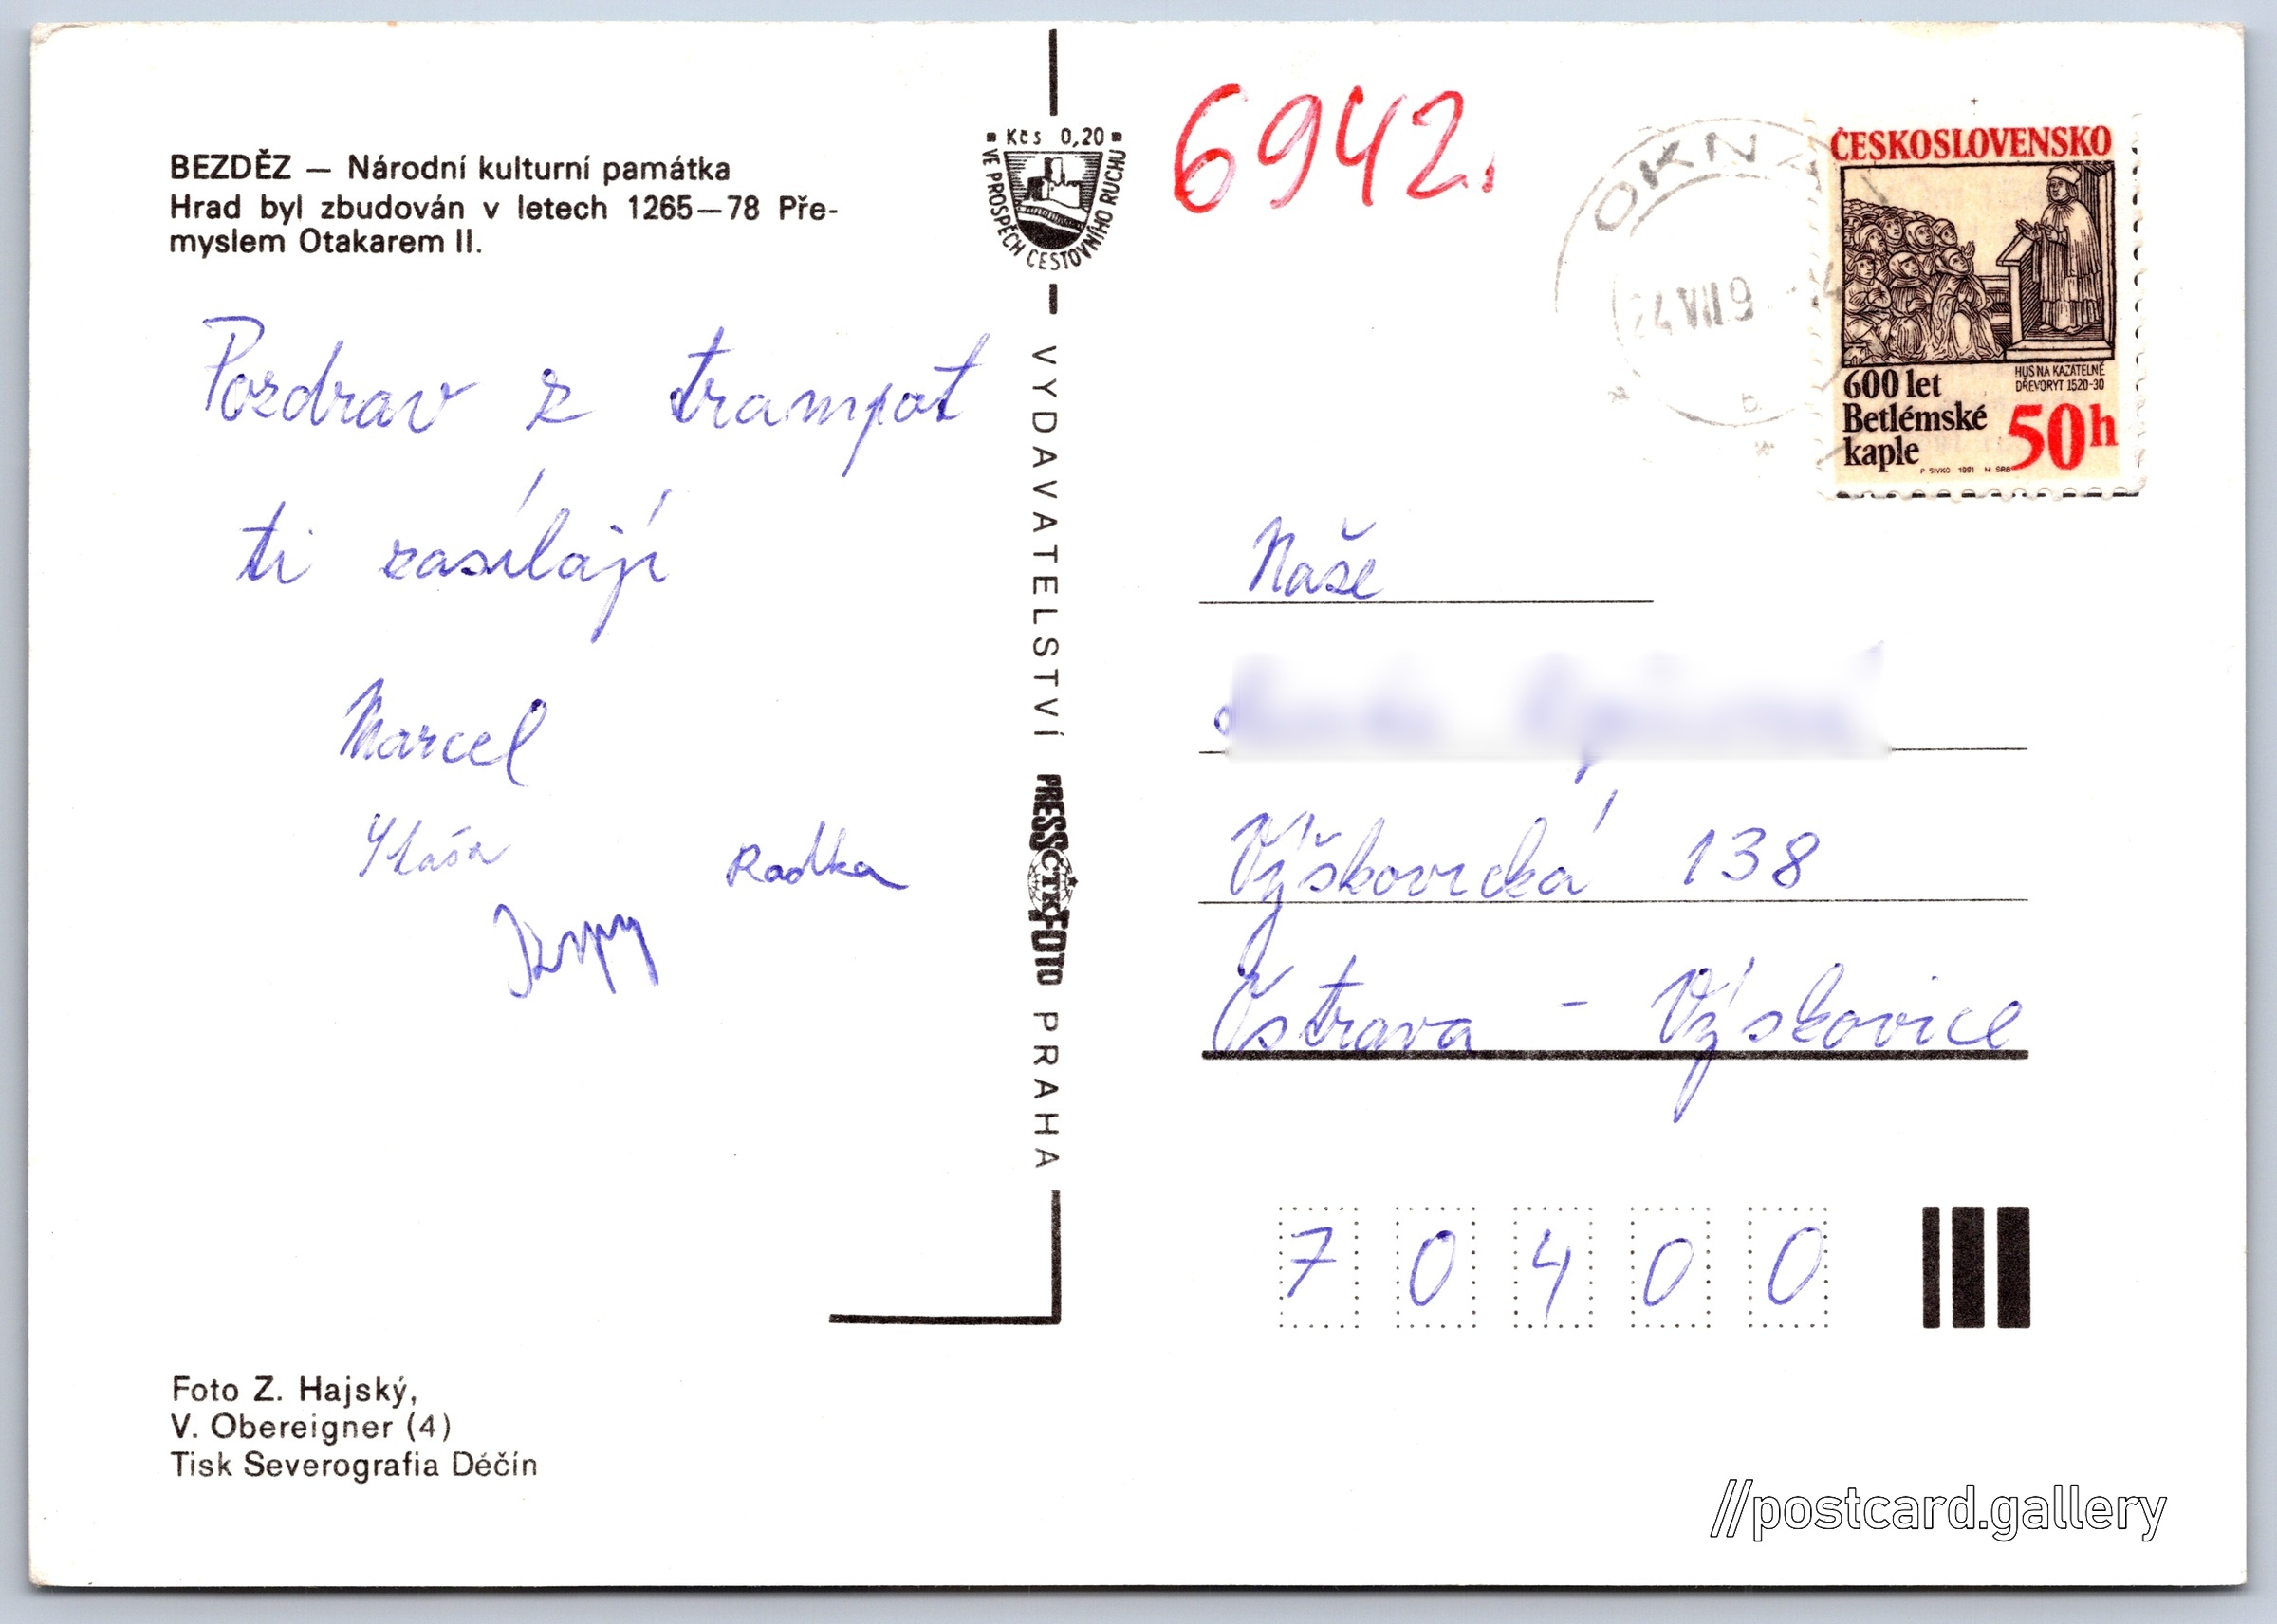 BEZDĚZ — Národní kulturní památka
Hrad byl zbudován v letech 1265—78 Pře-
myslem Otakarem II.
Pozdrav z trampot
ti zasílají
Marcel
Radka
Foto Z. Hajský,
V. Obereigner (4)
Tisk Severografia Děčín
Kčs 0,20
VE PROSPĚCH CESTOVNÍHO RUCHU
VYDAVATELSTVÍ PRESSFOTO PRAHA
ČTK
6942.
OKNA
24 VII 9
ČESKOSLOVENSKO
HUS NA KAZATELNĚ
DŘEVORYT 1520-30
600 let
Betlémské
kaple
50h
P SIVKO 1991 M SRB
Naše
Výškovická 138
Ostrava - Výškovice
7 0 4 0 0
//postcard.gallery